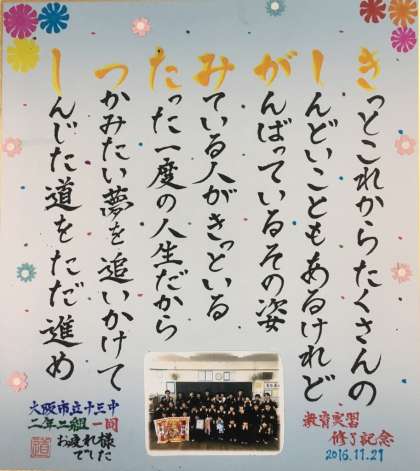 きっとこれからたくさんの
しんどいこともあるけれど
がんばっているその姿
みている人がきっといる
たった一度の人生だから
つかみたい夢を追いかけて
しんじた道をただ進め
教育実習
修了記念
2016.11.27
大阪市立十三中
二年二組一同
お疲れ様
でした